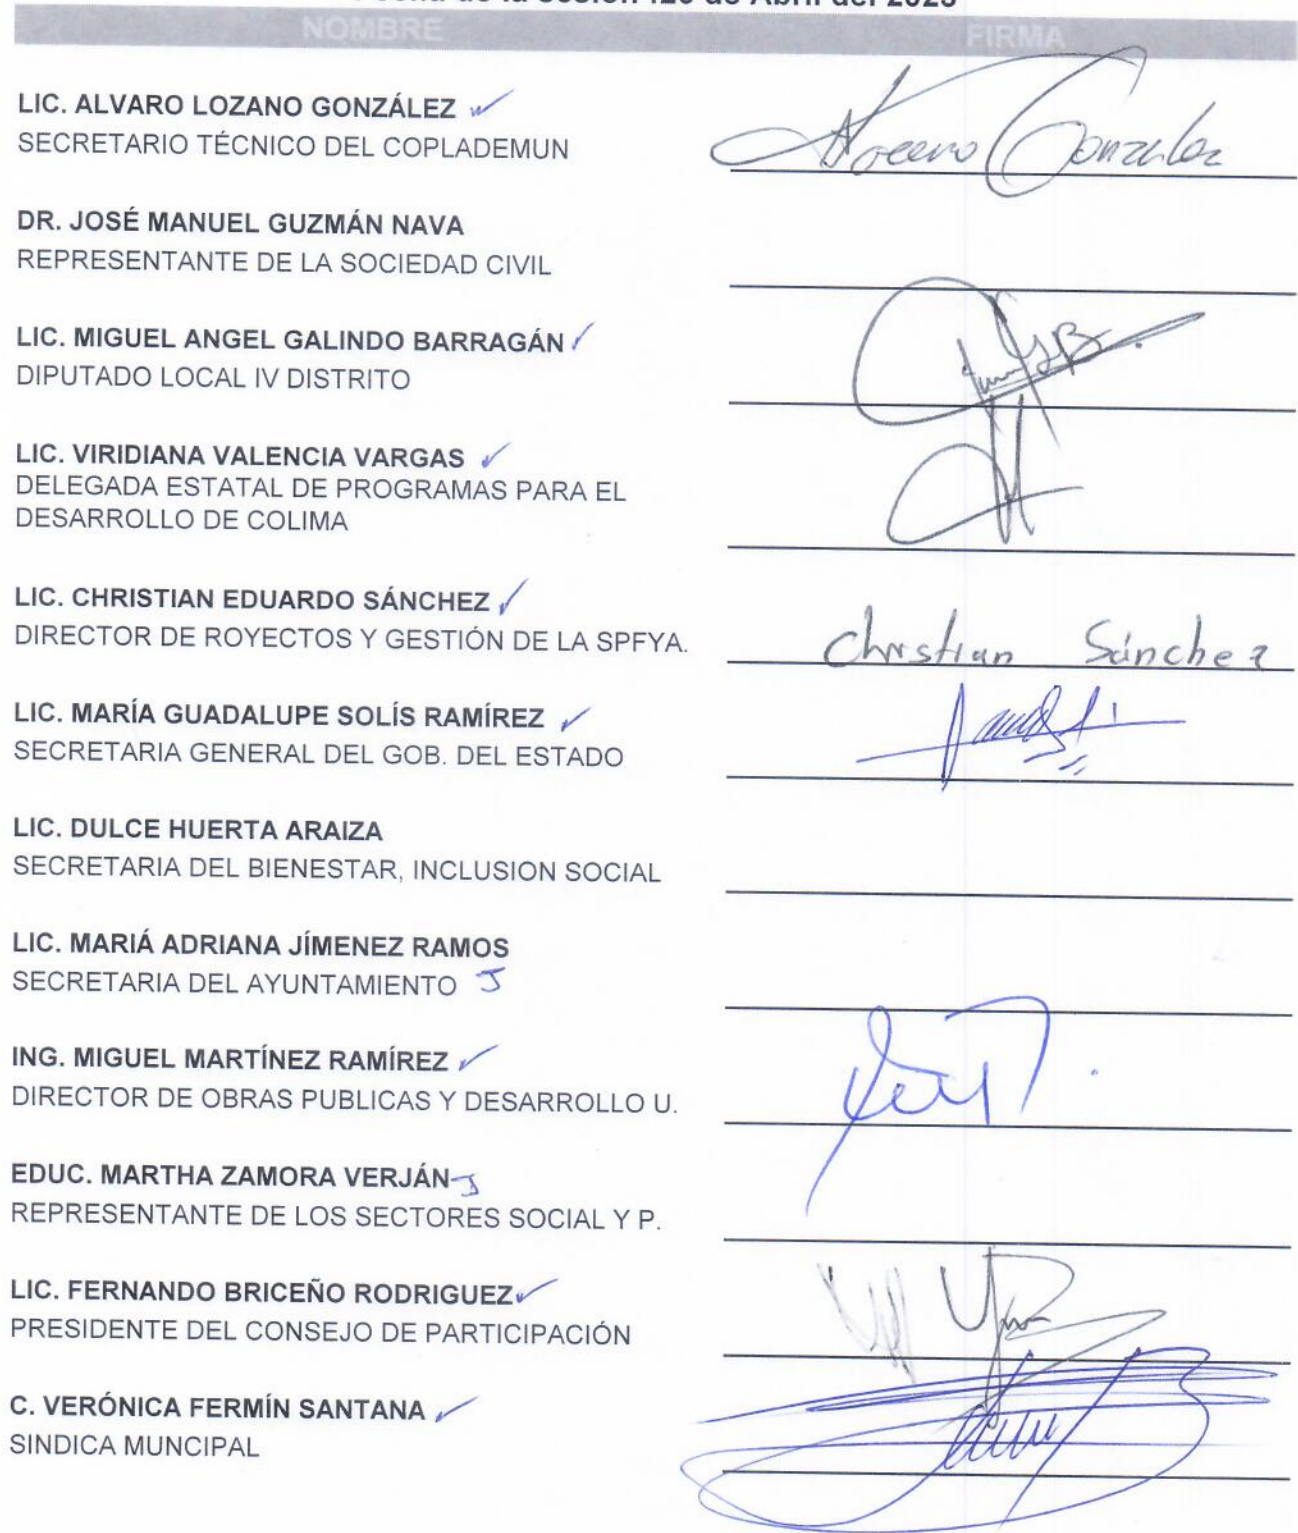 NOMBRE FIRMA
LIC. ALVARO LOZANO GONZÁLEZ
SECRETARIO TÉCNICO DEL COPLADEMUN
DR. JOSÉ MANUEL GUZMÁN NAVA
REPRESENTANTE DE LA SOCIEDAD CIVIL
LIC. MIGUEL ANGEL GALINDO BARRAGÁN
DIPUTADO LOCAL IV DISTRITO
LIC. VIRIDIANA VALENCIA VARGAS
DELEGADA ESTATAL DE PROGRAMAS PARA EL
DESARROLLO DE COLIMA
LIC. CHRISTIAN EDUARDO SÁNCHEZ
DIRECTOR DE ROYECTOS Y GESTIÓN DE LA SPFYA.
Christian Sánchez
LIC. MARÍA GUADALUPE SOLÍS RAMÍREZ
SECRETARIA GENERAL DEL GOB. DEL ESTADO
LIC. DULCE HUERTA ARAIZA
SECRETARIA DEL BIENESTAR, INCLUSION SOCIAL
LIC. MARIÁ ADRIANA JÍMENEZ RAMOS
SECRETARIA DEL AYUNTAMIENTO J
ING. MIGUEL MARTÍNEZ RAMÍREZ
DIRECTOR DE OBRAS PUBLICAS Y DESARROLLO U.
EDUC. MARTHA ZAMORA VERJÁN J
REPRESENTANTE DE LOS SECTORES SOCIAL Y P.
LIC. FERNANDO BRICEÑO RODRIGUEZ
PRESIDENTE DEL CONSEJO DE PARTICIPACIÓN
C. VERÓNICA FERMÍN SANTANA
SINDICA MUNCIPAL